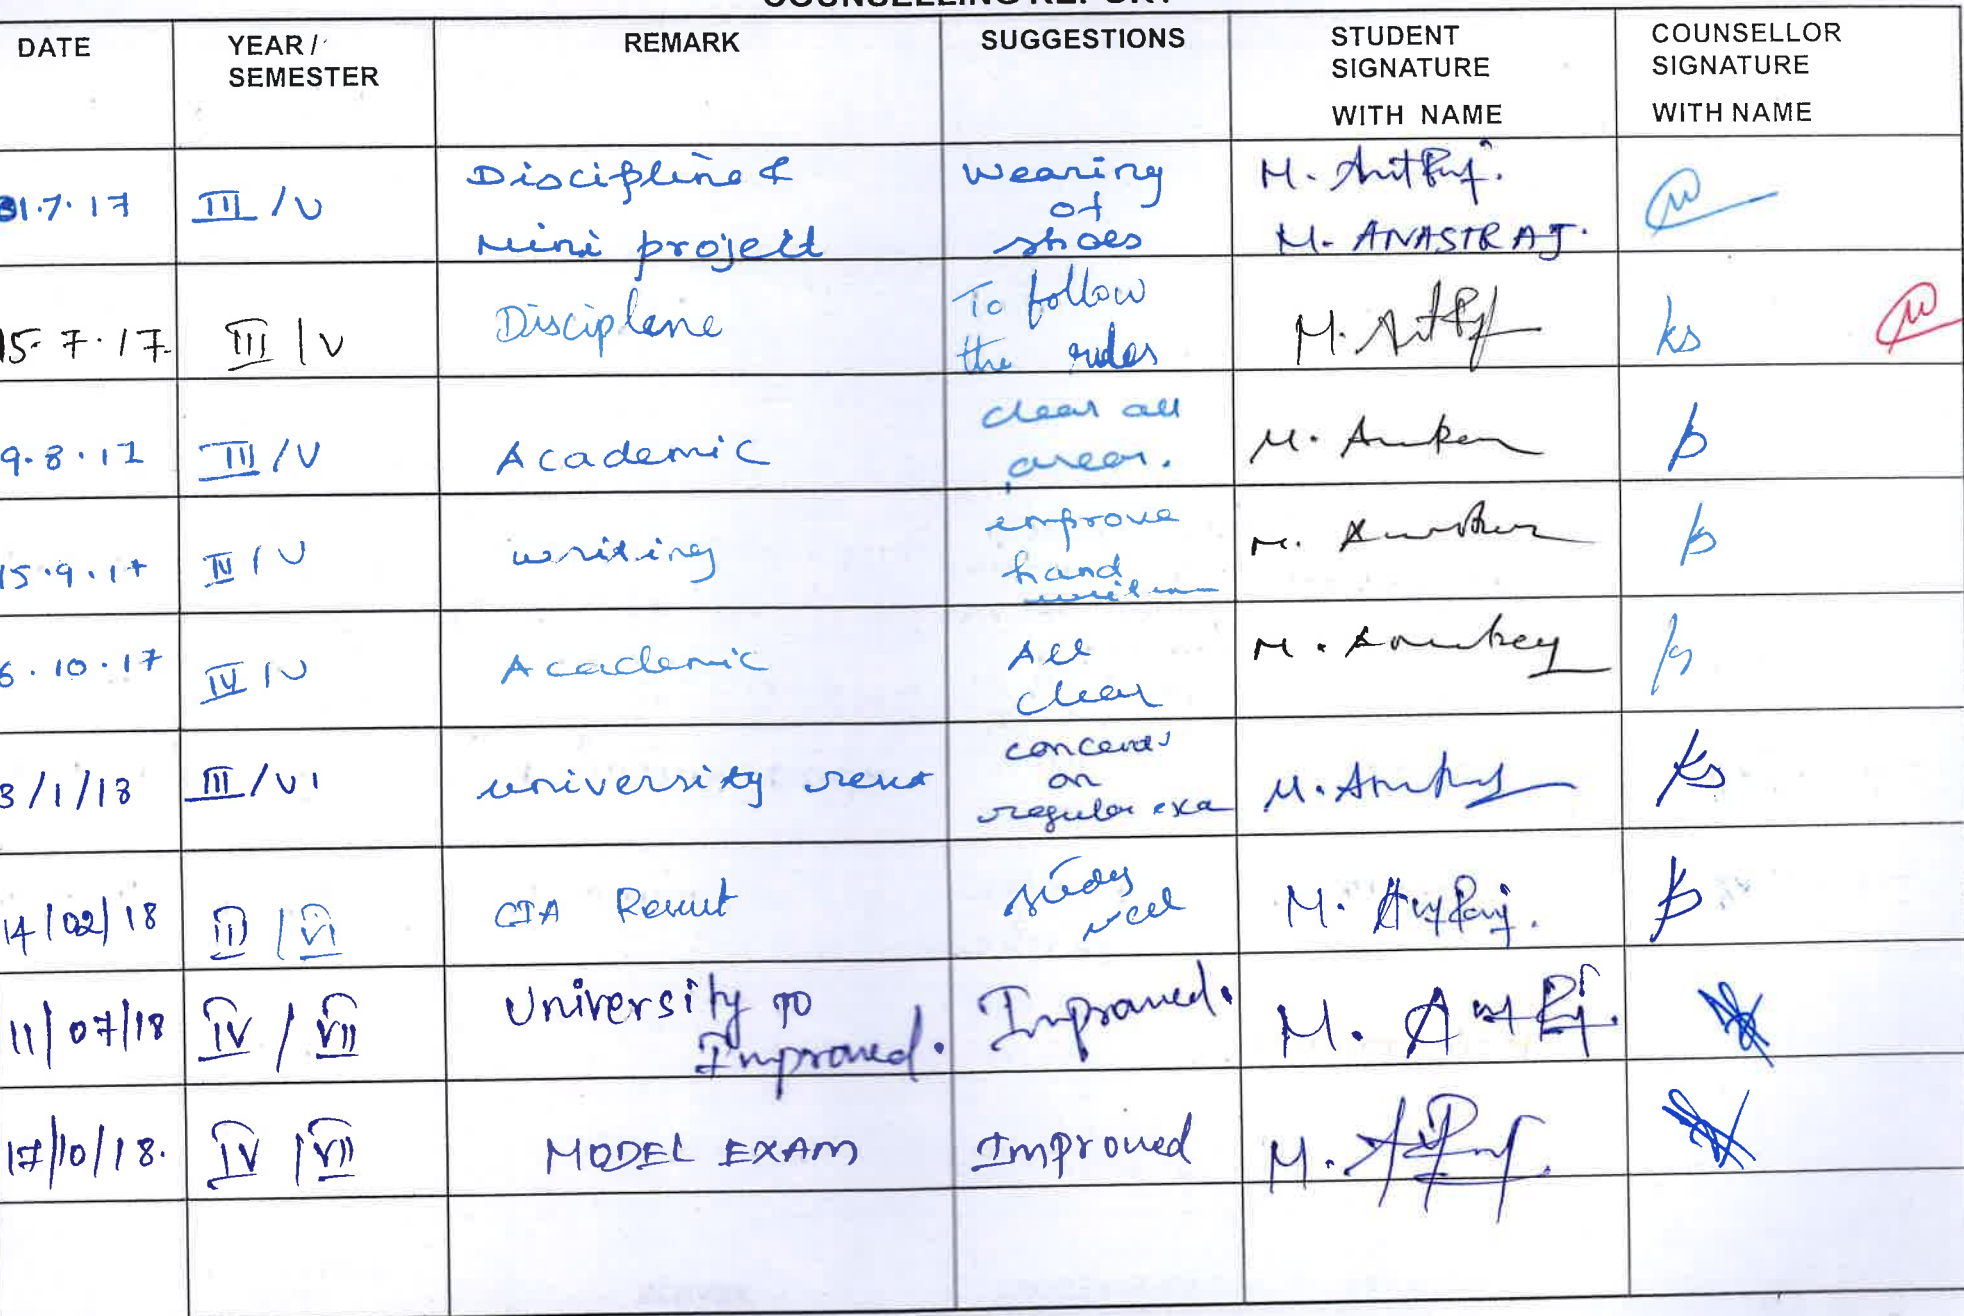 COUNSELLING REPORT
DATE
YEAR /
SEMESTER
REMARK
SUGGESTIONS
STUDENT
SIGNATURE
WITH NAME
COUNSELLOR
SIGNATURE
WITH NAME
31.7.17
III / V
Discipline &
Mini project
Wearing
of
shoes
M.
M. ANASTRAJ.
15.7.17
III / V
Disciplene
To follow
the rules
M.
ks
9.8.17
III / V
Academic
clear all
arear.
M.
15.9.17
IV / V
writing
improve
hand
M.
6.10.17
IV / V
Academic
All
clear
M.
3/1/18
III / VI
university
on
regular exa
M.
ks
14/02/18
III / VI
CIA Result
study
well
M.
11/07/18
IV / VII
University TO
Improved.
Improved.
M.
17/10/18.
IV / VII
MODEL EXAM
Improved
M.